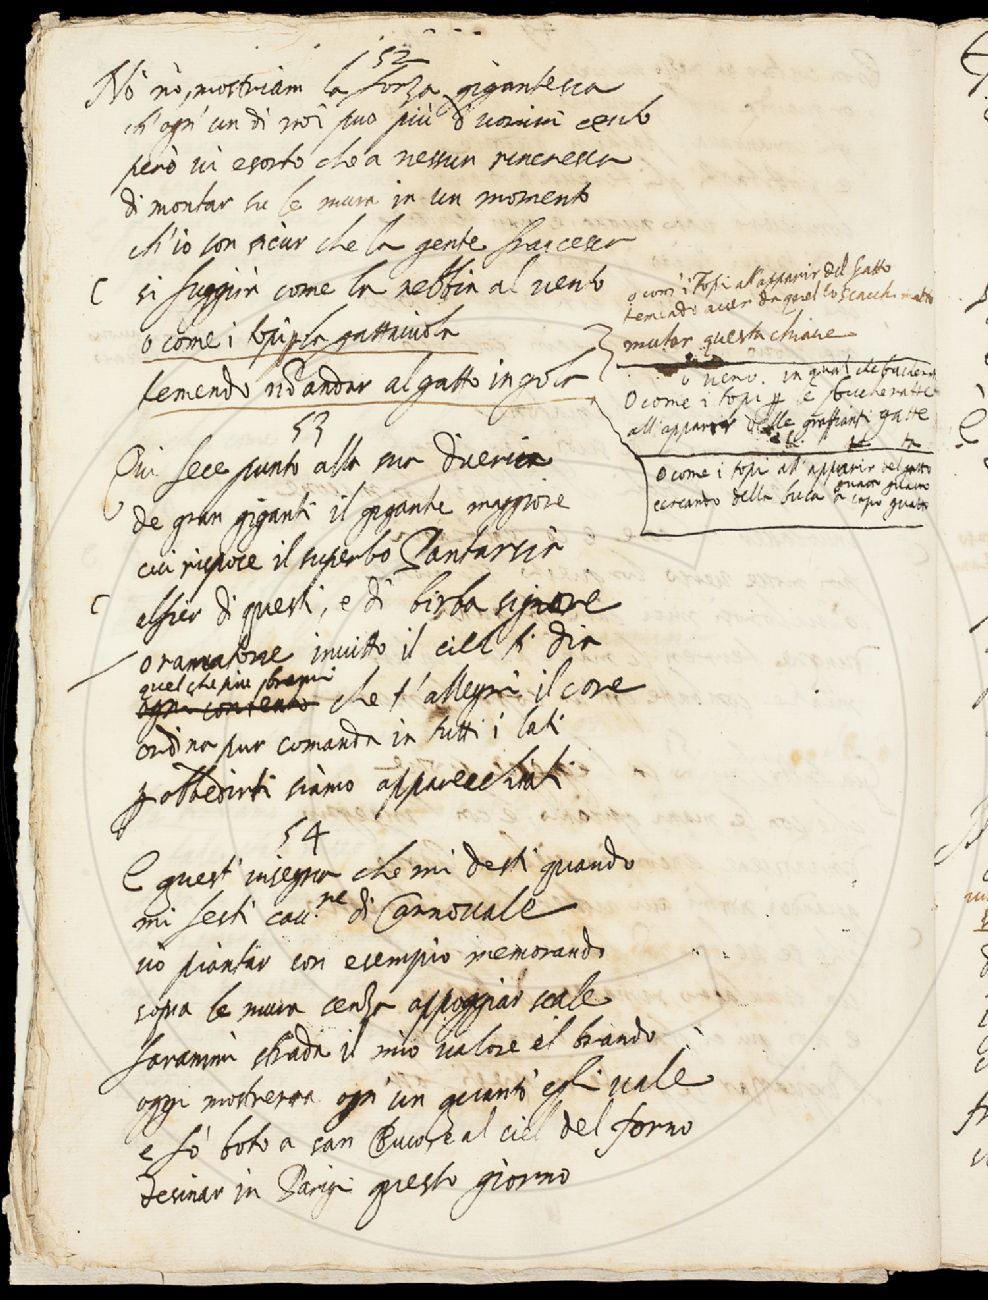 52
Nò nò, mostriam la forza gigantesca
ch'ogn'un di noi può più d'uomini cento
però vi esorto che a nessun rincresca
di montar su le mura in un momento
ch'io son sicur che la gente francesca
si fuggirà come la nebbia al vento
o come i topi p la gattaiuola
temendo nō andar al gatto in gola
o come i Topi all'apparir del Gatto
temendo aver da quello scacchi matto
mutar questa chiave
o vero. in qual che
O come i topi p e
all'apparir delle graffianti gatte
o come i topi all'apparir del gatto
cercando della buca
53
Qui fece punto alla sua diceria
de gran giganti il gigante maggiore
cui rispose il superbo
alfier di questi, e di birba signore
invitto il ciel ti dia
quel che più brami
ogni contento che t'allegri il core
ordina pur comanda in tutti i lati
p obbedirti siamo apparecchiati
54
E quest'insegna che mi desti quando
mi festi cau.re di Carnovale
vò piantar con esempio memorando
sopra le mura cenza appoggiar scale
farammi strada il mio valore e'l brando
oggi mostrerrà ogn'un quant'egli vale
e fò boto a san al ciel del forno
desinar in Parigi questo giorno